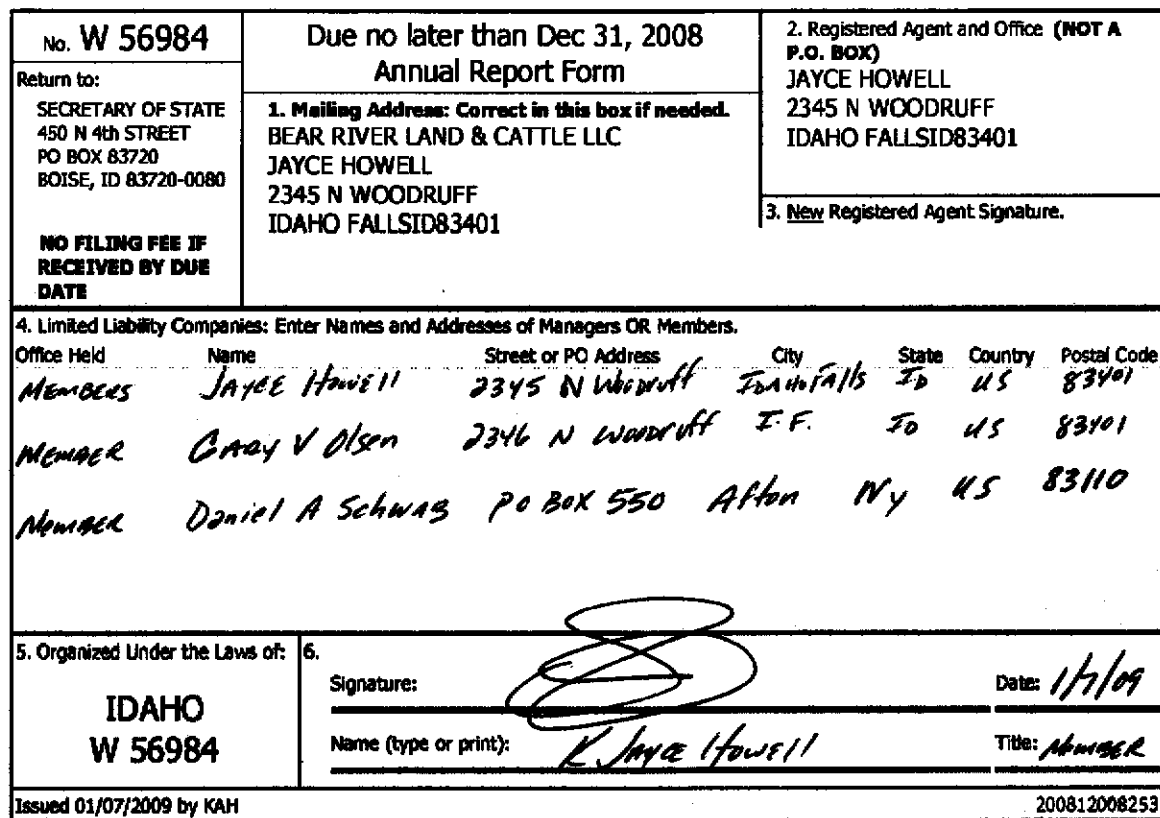 No. W 56984
Return to:
SECRETARY OF STATE
450 N 4th STREET
PO BOX 83720
BOISE, ID 83720-0080
NO FILING FEE IF
RECEIVED BY DUE
DATE
Due no later than Dec 31, 2008
Annual Report Form
1. Mailing Address: Correct in this box if needed.
BEAR RIVER LAND & CATTLE LLC
JAYCE HOWELL
2345 N WOODRUFF
IDAHO FALLSID83401
2. Registered Agent and Office (NOT A
P.O. BOX)
JAYCE HOWELL
2345 N WOODRUFF
IDAHO FALLSID83401
3. New Registered Agent Signature.
4. Limited Liability Companies: Enter Names and Addresses of Managers OR Members.
Office Held Name Street or PO Address City State Country Postal Code
MEMBERS JAYCE HOWELL 2345 N Woodruff IDAHO FAlls ID US 83401
MEMBER GARY V Olsen 2346 N Woodruff I.F. ID US 83401
MEMBER Daniel A Schwab PO BOX 550 Afton Wy US 83110
5. Organized Under the Laws of:
IDAHO
W 56984
6.
Signature:
Date: 1/7/09
Name (type or print): K JAYCE HOWEll
Title: MEMBER
Issued 01/07/2009 by KAH
200812008253